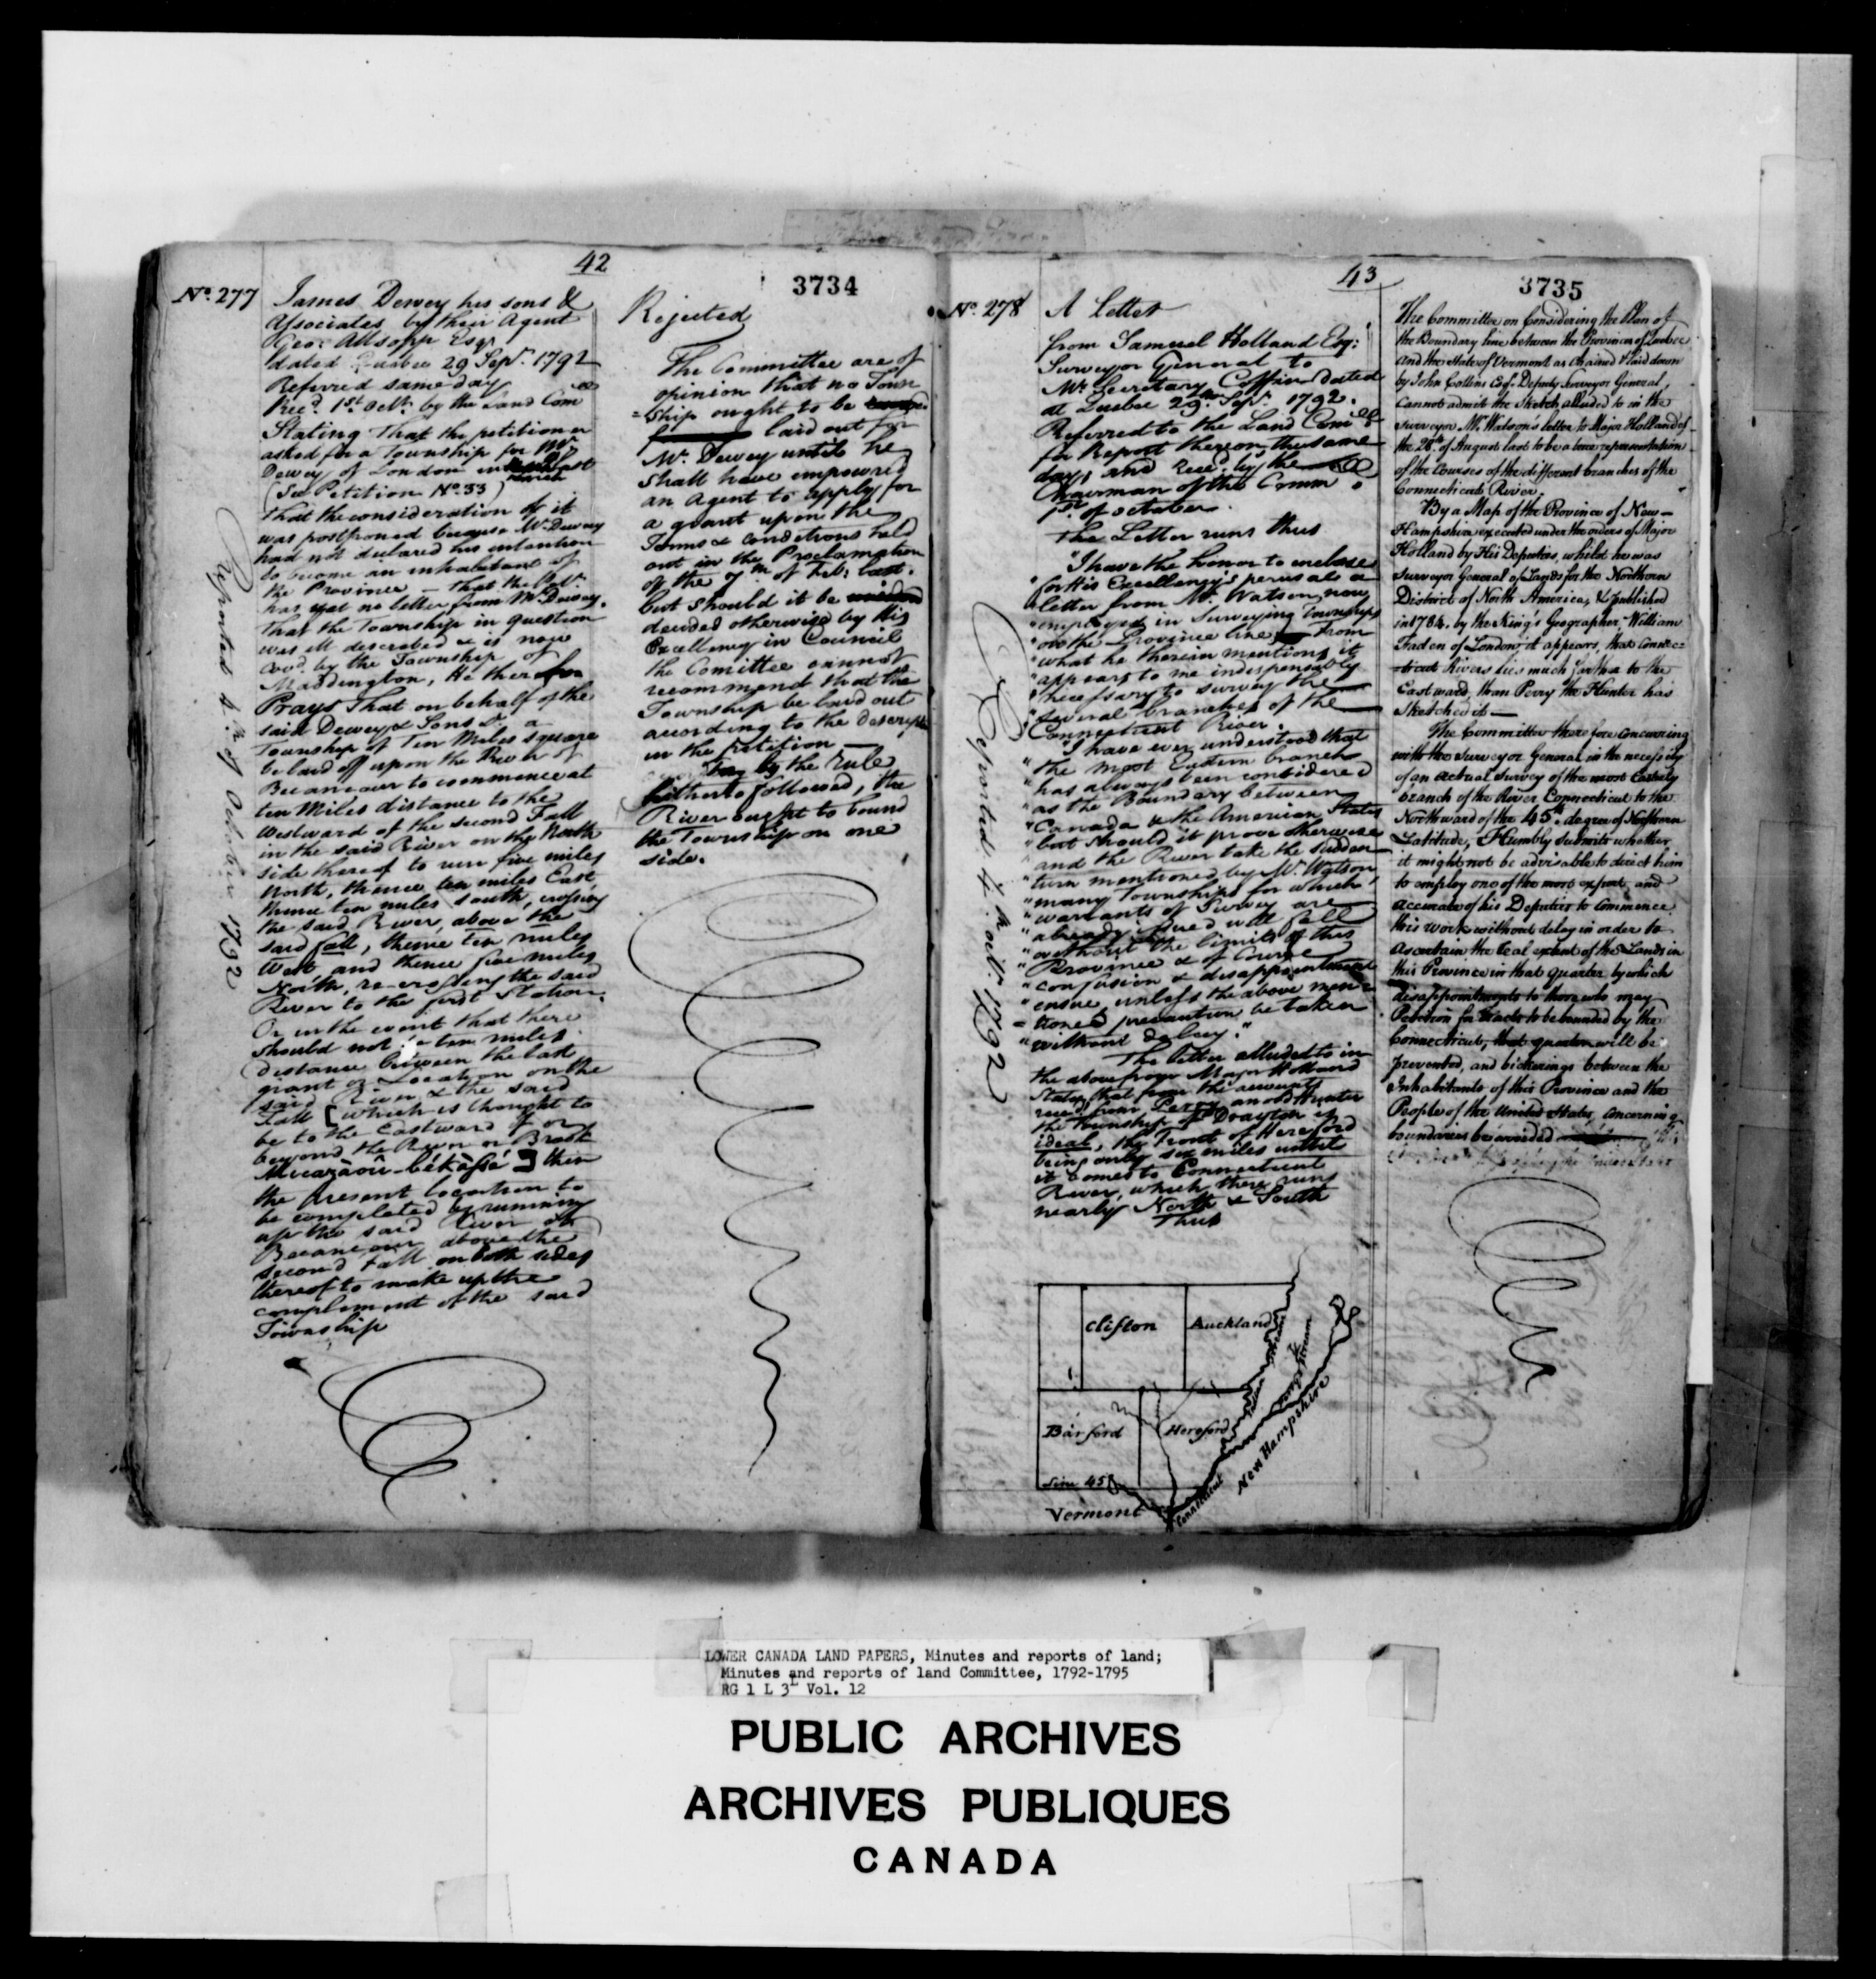 42
3734
No. 277
James Dewey his sons &
Associates by their Agent
Geo: Allsopp Esqr
dated Quebec 29 Septr. 1792
Referred same day
Recd. 1st. Octr. by the Land Comee
Stating That the petitioner
asked for a Township for Mr
Dewey of London in
March
(See Petition No. 33)
That the consideration of it
was postponed because Mr Dewey
had not declared his intention
to become an inhabitant of
the Province — That the Petr.
has yet no letter from Mr Dewey.
That the Township in question
was ill described & is now
covd. by the Township of
Maddington, He therefore
Prays That on behalf of the
said Dewey & Sons &c a
Township of Ten Miles square
be laid off upon the River of
Becancour to commence at
ten Miles distance to the
Westward of the second Fall
in the said River on the North
side thereof to run five miles
North, thence ten miles East,
thence ten miles south, crossing
the said River, above the
said fall, thence ten miles
West and thence five miles
North, re-crossing the said
River to the first Station.
Or in the event that there
should not be ten miles
distance between the last
grant or Location on the
said River & the said
Fall [which is thought to
be to the Eastward of or
beyond the River or Brook
] then
the present location to
be completed by running
up the said River of
Becancour above the
second Fall on both sides
thereof to make up the
complement of the said
Township
Reported 4th of October 1792
Rejected
The Committee are of
opinion that no Town
=ship ought to be
laid out for
Mr. Dewey until he
shall have empowered
an Agent to apply for
a grant upon the
Terms & conditions held
out in the Proclamation
of the 7th of Feb: last.
but should it be
decided otherwise by His
Excellency in Council
the Comittee cannot
recommend that the
Township be laid out
according to the descript
in the petition —
by the Rule
hitherto followed, the
River ought to bound
the Township on one
side.
43
3735
No. 278
A Letter
from Samuel Holland Esq:
Surveyor General to
Mr. Secretary Coffin dated
at Quebec 29th. Septr. 1792.
Referred to the Land Comee
for Report thereon, the same
day, and Recd. by the
Chairman of the Comm
1st. of october.
The Letter runs thus
"I have the honor to enclose
"for His Excellency's perusal a
"letter from Mr. Watson, now
"employed in Surveying Townships
"on the Province line From
"what he therein mentions it
"appears to me indispensably
"necessary to survey the
"several branches of the
"Connecticut River.
"I have ever understood that
"the most Eastern branch
"has always been considered
"as the Boundary between
"Canada & the American States
"but should it prove otherwise
"and the River take the sudden
"turn mentioned by Mr. Watson,
"many Townships for which
"warrants of Survey are
"already issued will fall
"without the limits of this
"Province & of Course
"confusion & disappointment
"ensue, unless the above men=
"tioned precaution be taken
"without delay."
The letter alluded to in
the above from Major Holland
States, that from the accounts
recd. from Perry an old Hunter
the Township of Drayton is
ideal, the Front of Hereford
being only six miles until
it comes to Connecticut
River, which there runs
nearly North & South
Thus
Reported 4th. octr. 1792
Clifton
Auckland
Barford
Hereford
Indian Stream
Perry's Stream
New Hampshire
Line 45
Vermont
Connecticut
The Committee on Considering the Plan of
the Boundary line between the Provinces of Quebec
and the State of Vermont as chained & laid down
by John Collins Esqr. Deputy Surveyor General,
cannot admit the Sketch alluded to in the
surveyor Mr. Watson's letter to Major Holland of
the 28th. of August last to be a true representation
of the Courses of the different branches of the
Connecticut River.
By a Map of the Province of New-
Hampshire executed under the orders of Major
Holland by His Deputies, whilst he was
Surveyor General of Lands for the Northern
District of North America, & published
in 1784. by the King's Geographer, William
Faden of London, it appears, that Connec=
=ticut River lies much farther to the
Eastward, than Perry the Hunter has
Sketched it —
The Committee therefore Concurring
with the Surveyor General in the necessity
of an actual survey of the most Easterly
branch of the River Connecticut to the
Northward of the 45th. degree of Northern
Latitude, Humbly Submits whether
it might not be advisable to direct him
to employ one of the most expert, and
accurate of his Deputies to Commence
this work without delay in order to
ascertain the real extent of the Lands in
this Province in that quarter, by which
disappointments to those who may
Petition for tracts to be bounded by the
Connecticut, that quarter will be
prevented, and bickerings between the
Inhabitants of this Province and the
People of the United States, concerning
boundaries be avoided
LOWER CANADA LAND PAPERS, Minutes and reports of land;
Minutes and reports of land Committee, 1792-1795
RG 1 L 3L Vol. 12
PUBLIC ARCHIVES
ARCHIVES PUBLIQUES
CANADA